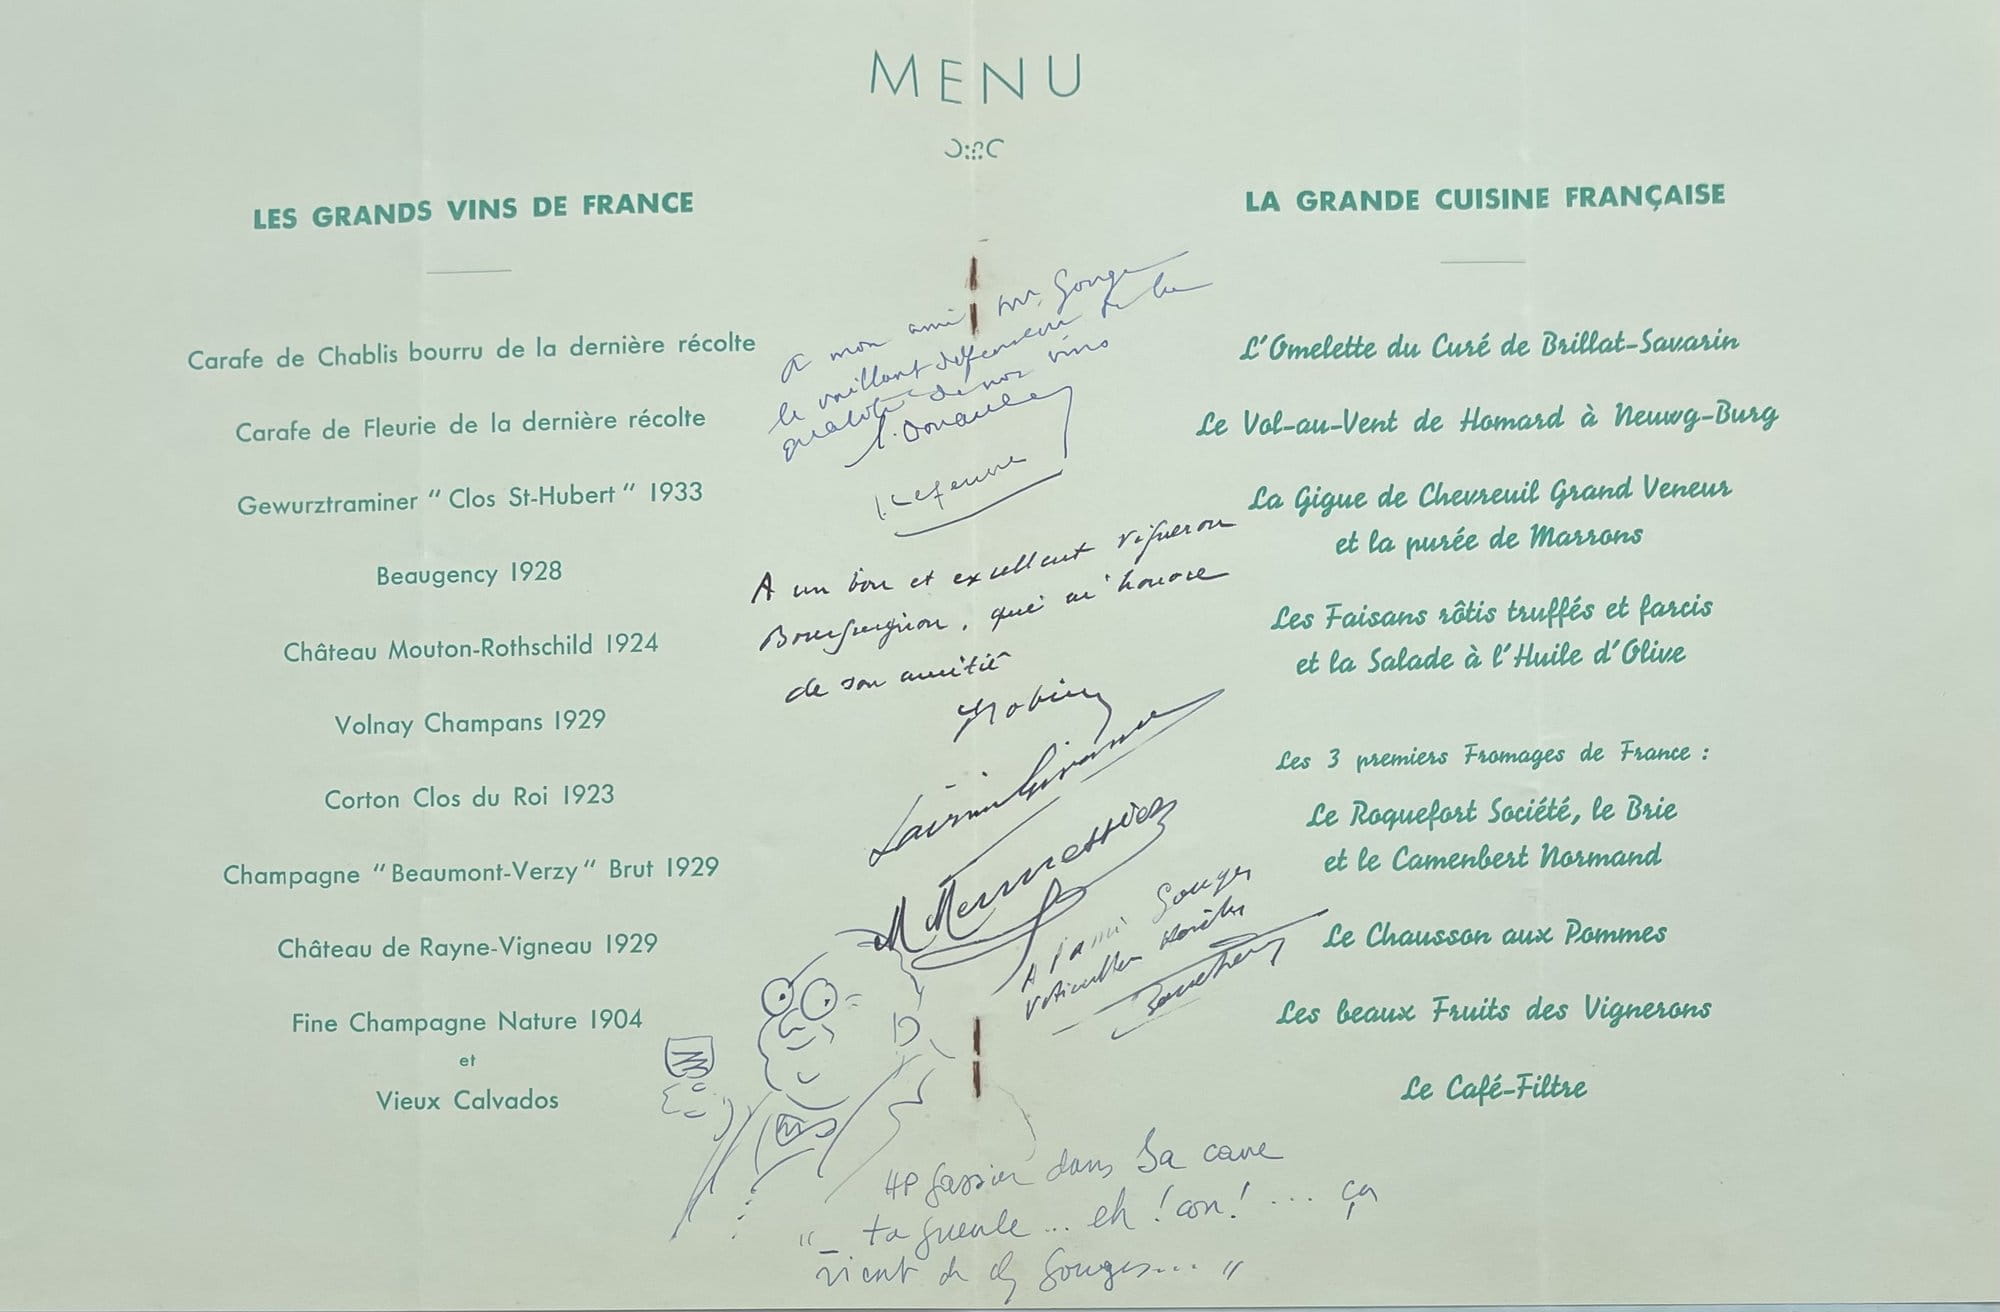 MENU
LES GRANDS VINS DE FRANCE
Carafe de Chablis bourru de la dernière récolte
Carafe de Fleurie de la dernière récolte
Gewurztraminer "Clos St-Hubert" 1933
Beaugency 1928
Château Mouton-Rothschild 1924
Volnay Champans 1929
Corton Clos du Roi 1923
Champagne "Beaumont-Verzy" Brut 1929
Château de Rayne-Vigneau 1929
Fine Champagne Nature 1904
et
Vieux Calvados
LA GRANDE CUISINE FRANÇAISE
L'Omelette du Curé de Brillat-Savarin
Le Vol-au-Vent de Homard à Neuwg-Burg
La Gigue de Chevreuil Grand Veneur
et la purée de Marrons
Les Faisans rôtis truffés et farcis
et la Salade à l'Huile d'Olive
Les 3 premiers Fromages de France :
Le Roquefort Société, le Brie
et le Camenbert Normand
Le Chausson aux Pommes
Les beaux Fruits des Vignerons
Le Café-Filtre
a mon ami Mr. Gouges
le vaillant défenseur de la
qualité de nos vins
A un bon et excellent vigneron
Bourguignon, qui m'honore
de son amitié
A l'ami Gouges
dans sa cave
"_ ta gueule ... eh ! con ! ... ça
vient de chez Gouges... "